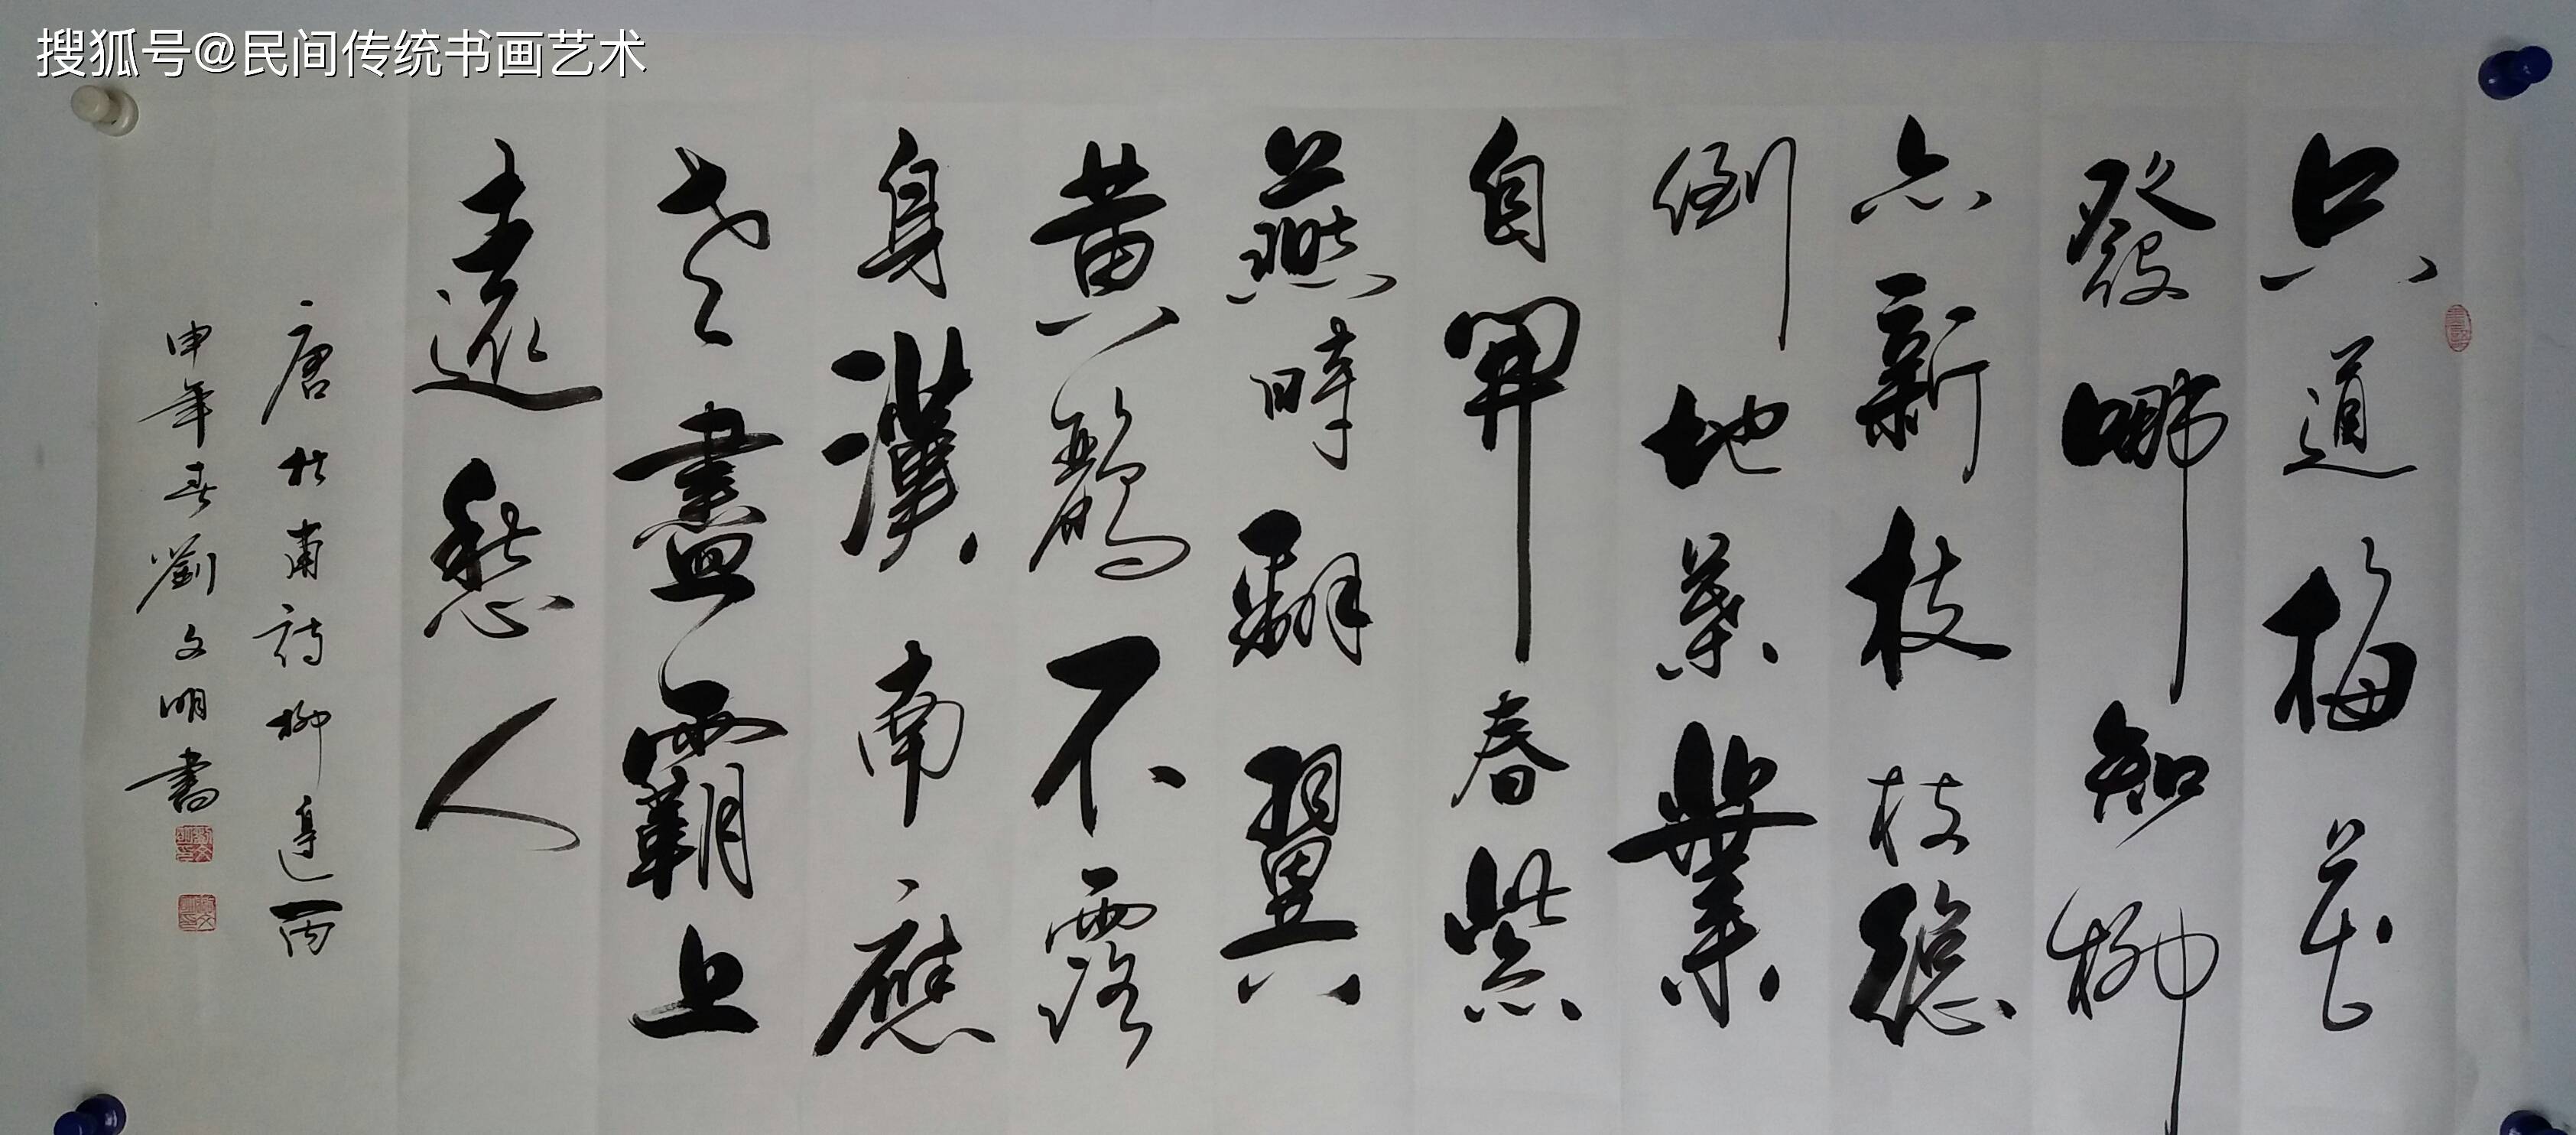 搜狐号@民间传统书画艺术
只道梅花
發哪知柳
亦新枝枝總
倒地葉業
自開春紫
燕時翻翼
黄鸝不露
身漢南應
老盡霸上
遠愁人
唐杜甫詩柳邊丙
申年春劉文明書